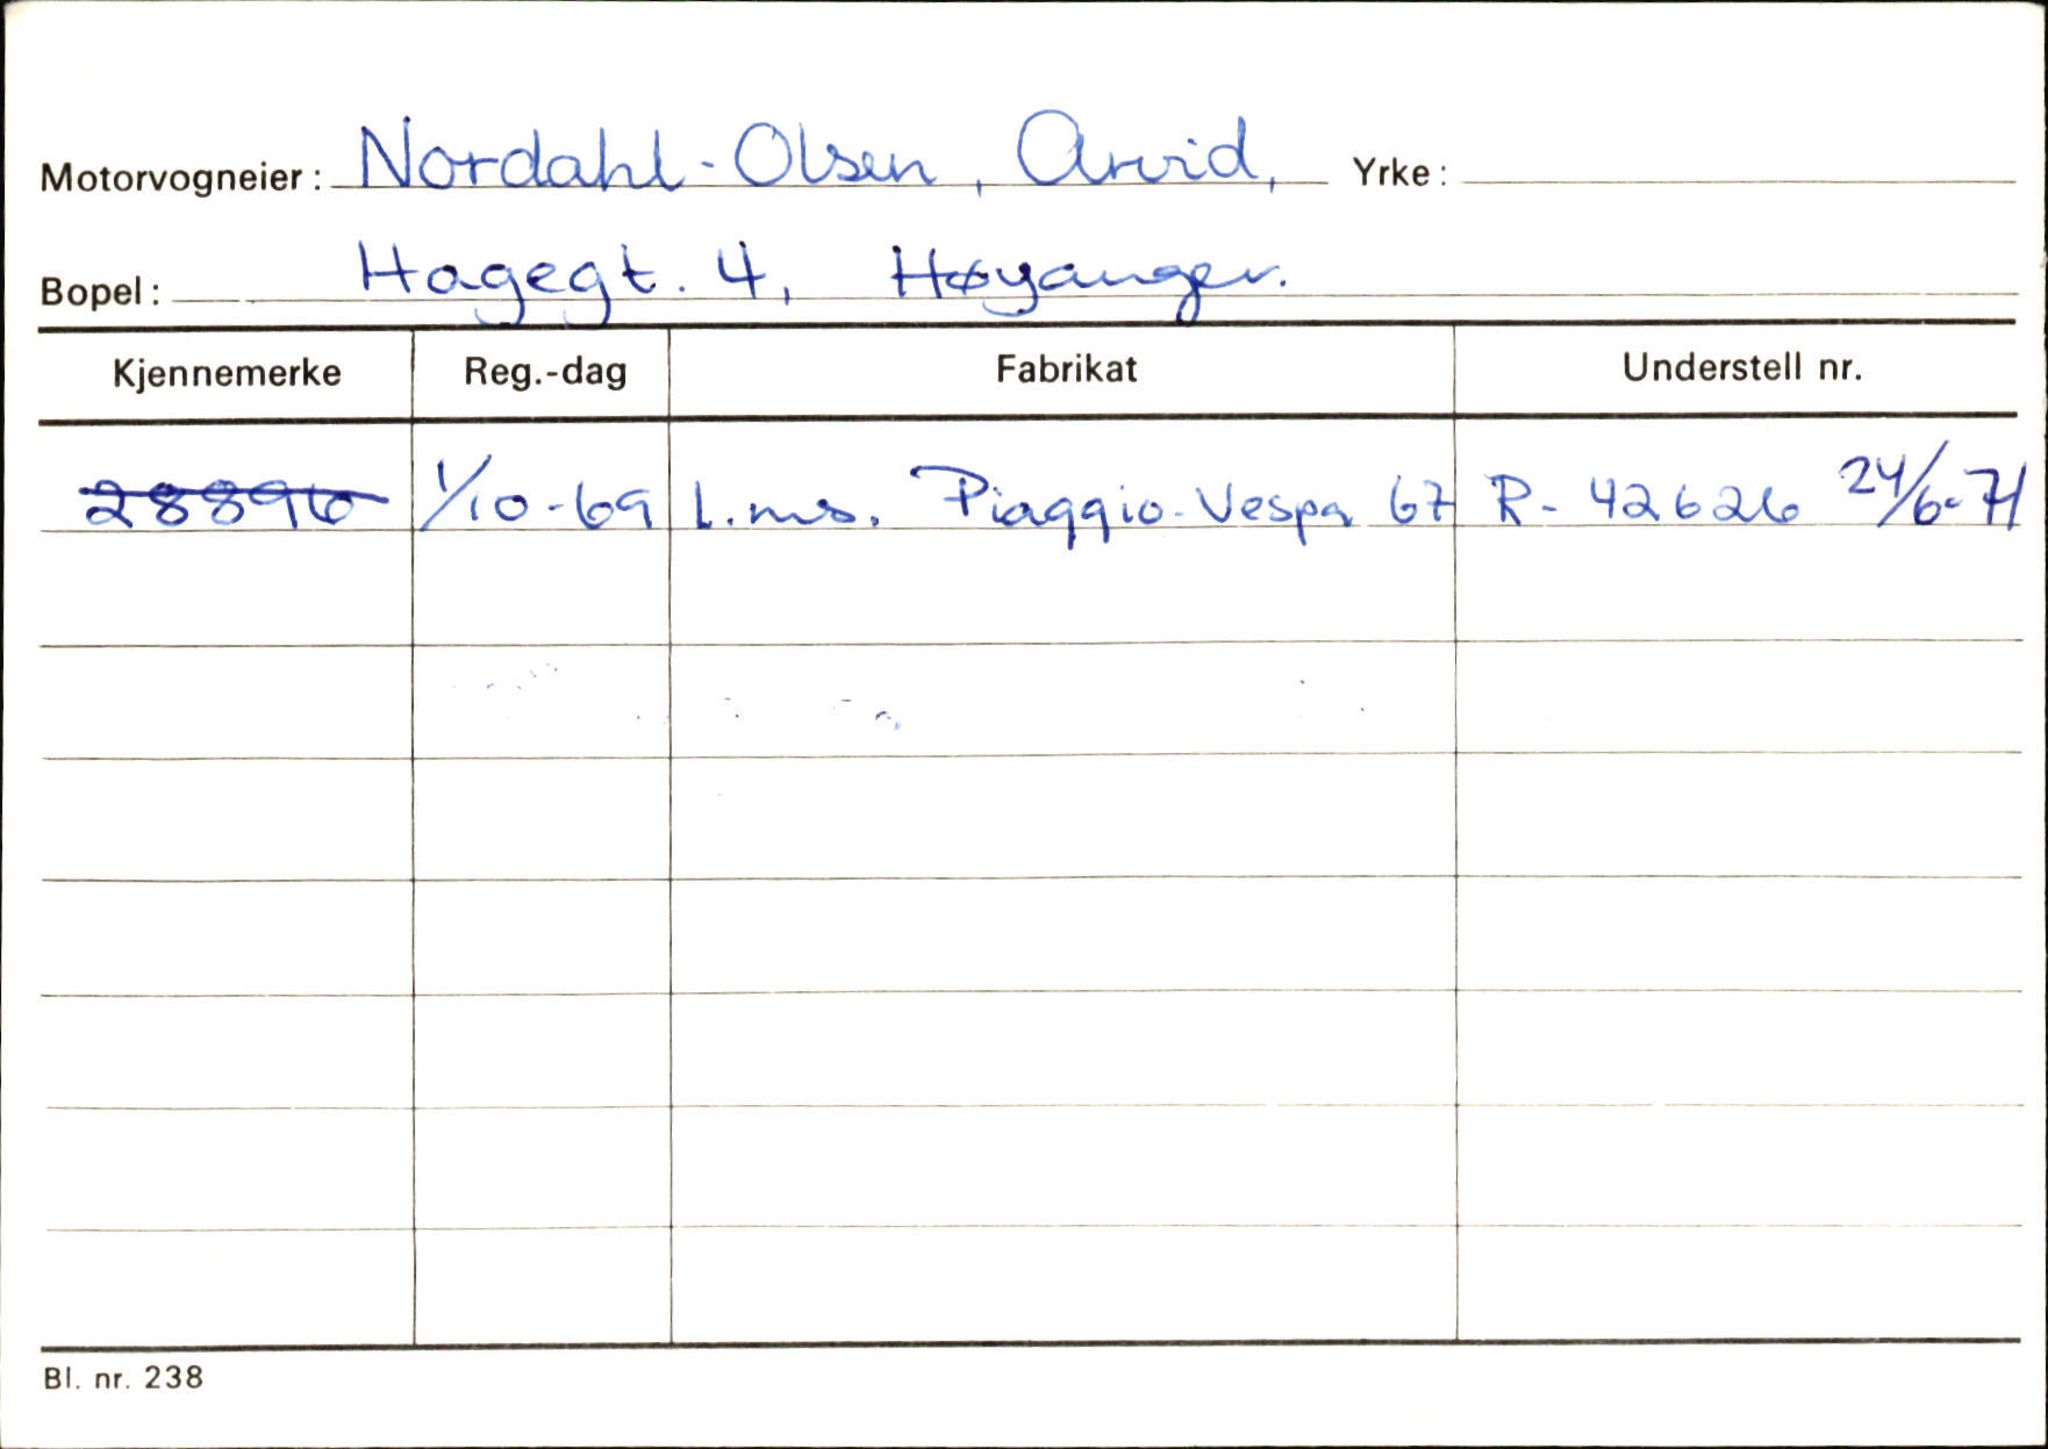 Motorvogneier: Nordahl-Olsen, Arvid, Yrke:
Bopel: Hagegt. 4, Høyanger.
Kjennemerke Reg.-dag Fabrikat Understell nr.
28896 1/10-69 L.ms. Piaggio-Vespa 67 R- 42626 24/6-71
Bl. nr. 238